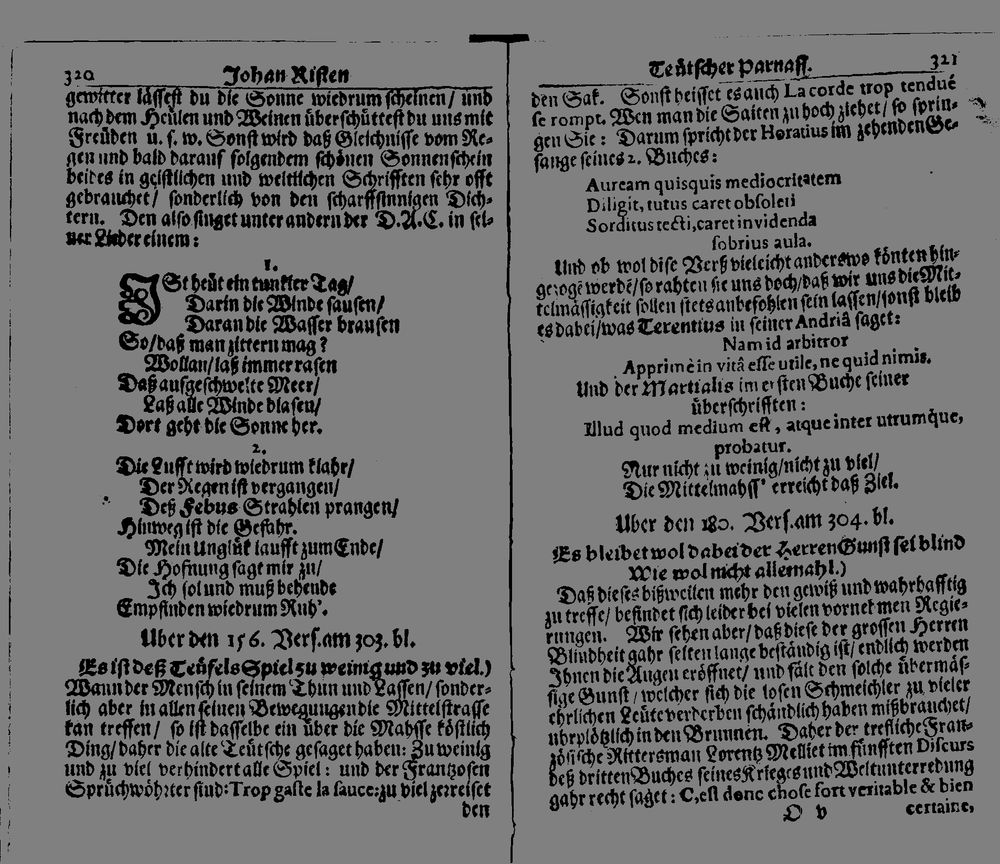 320 Johan Risten
gewitter lässest du die Sonne wiedrum scheinen/ und
nach dem Heülen und Weinen überschüttest du uns mit
Freüden u. s. w. Sonst wird daß Gleichnisse vom Re-
gen und bald darauf folgendem schönen Sonnenschein
beides in geistlichen und weltlichen Schrifften sehr offt
gebrauchet/ sonderlich von den scharffsinnigen Dich-
tern. Den also singet unter andern der D. A. C. in sei-
ner Lieder einem:
1.
ISt heüt ein tunkler Tag/
Darin die Winde sausen/
Daran die Wasser brausen
So/daß man zittern mag?
Wollan/laß immer rasen
Daß aufgeschwelte Meer/
Laß alle Winde blasen/
Dort geht die Sonne her.
2.
Die Lufft wird wiedrum klahr/
Der Regen ist vergangen/
Deß Febus Strahlen prangen/
Hinweg ist die Gefahr.
Mein Unglük laufft zum Ende/
Die Hofnung sagt mir zu/
Ich sol und muß behende
Empfinden wiedrum Ruh'.
Uber den 156. Vers. am 303. bl.
Es ist deß Teüfels Spiel zu weinig und zu viel.)
Wann der Mensch in seinem Thun und Lassen/ sonder-
lich aber in allen seinen Bewegungen die Mittelstrasse
kan treffen/ so ist dasselbe ein über die Mahsse köstlich
Ding/ daher die alte Teütsche gesaget haben: Zu weinig
und zu viel verhindert alle Spiel: und der Frantzosen
Sprüchwöhrter sind: Trop gaste la sauce: zu viel zerreiset
den
Teütscher Parnass. 321
den Sak. Sonst heisset es auch La corde trop tenduë
se rompt. Wen man die Saiten zu hoch ziehet/ so sprin-
gen Sie: Darum spricht der Horatius im zehenden Ge-
sange seines 2. Buches:
Auream quisquis mediocritatem
Diligit, tutus caret obsoleti
Sorditus tecti, caret invidenda
sobrius aula.
Und ob wol dise Verß vieleicht anderswo könten hin-
gezogē werdē/ so rahten sie uns doch/ daß wir uns die Mit-
telmässigkeit sollen stets anbefohlen sein lassen/ sonst bleib
es dabei/ was Terentius in seiner Andriâ saget:
Nam id arbitror
Apprimè in vitâ esse utile, ne quid nimis.
Und der Martialis im ersten Buche seiner
überschrifften:
Illud quod medium est, atque inter utrumq́ue,
probatur.
Nur nicht zu weinig/ nicht zu viel/
Die Mittelmahss' erreicht daß Ziel.
Uber den 180. Vers. am 304. bl.
Es bleibet wol dabei der Herren Gunst sei blind
Wie wol nicht allemahl.)
Daß dieses bißweilen mehr den gewiß und wahrhafftig
zu treffe/ befindet sich leider bei vielen vornehmen Regie-
rungen. Wir sehen aber/ daß diese der grossen Herren
Blindheit gahr selten lange beständig ist/ endlich werden
Ihnen die Augen eröffnet/ und fält den solche übermäs-
sige Gunst/ welcher sich die losen Schmeichler zu vieler
ehrlichen Leüte verderben schändlich haben mißbrauchet/
uhrplötzlich in den Brunnen. Daher der trefliche Fran-
zösische Rittersman Lorentz Melliet im fünfften Discurs
deß dritten Buches seines Krieges und Weltunterredung
gahr recht saget: C, est donc chose fort veritable & bien
O v certaine,